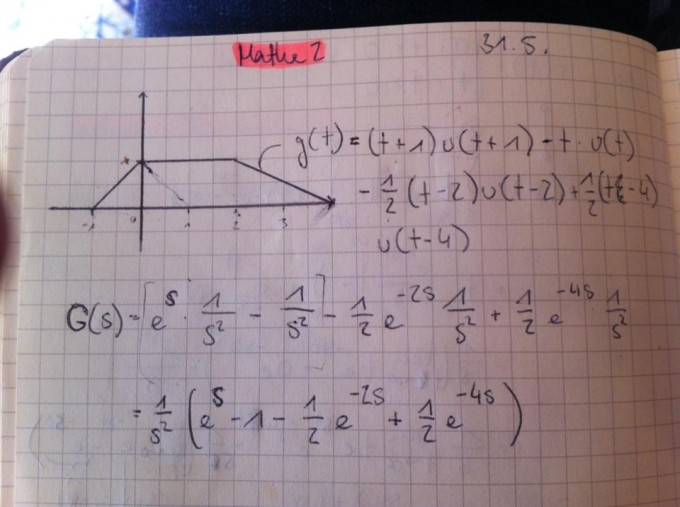 Mathe 2
31.5.
g(t) = (t+1)u(t+1) - t · u(t)
- 1/2 (t-2)u(t-2) + 1/2 (t-4)
u(t-4)
1
-1 0 1 2 3
G(s) = [e^s · 1/s² - 1/s²] - 1/2 e^-2s 1/s² + 1/2 e^-4s 1/s²
= 1/s² (e^s - 1 - 1/2 e^-2s + 1/2 e^-4s)